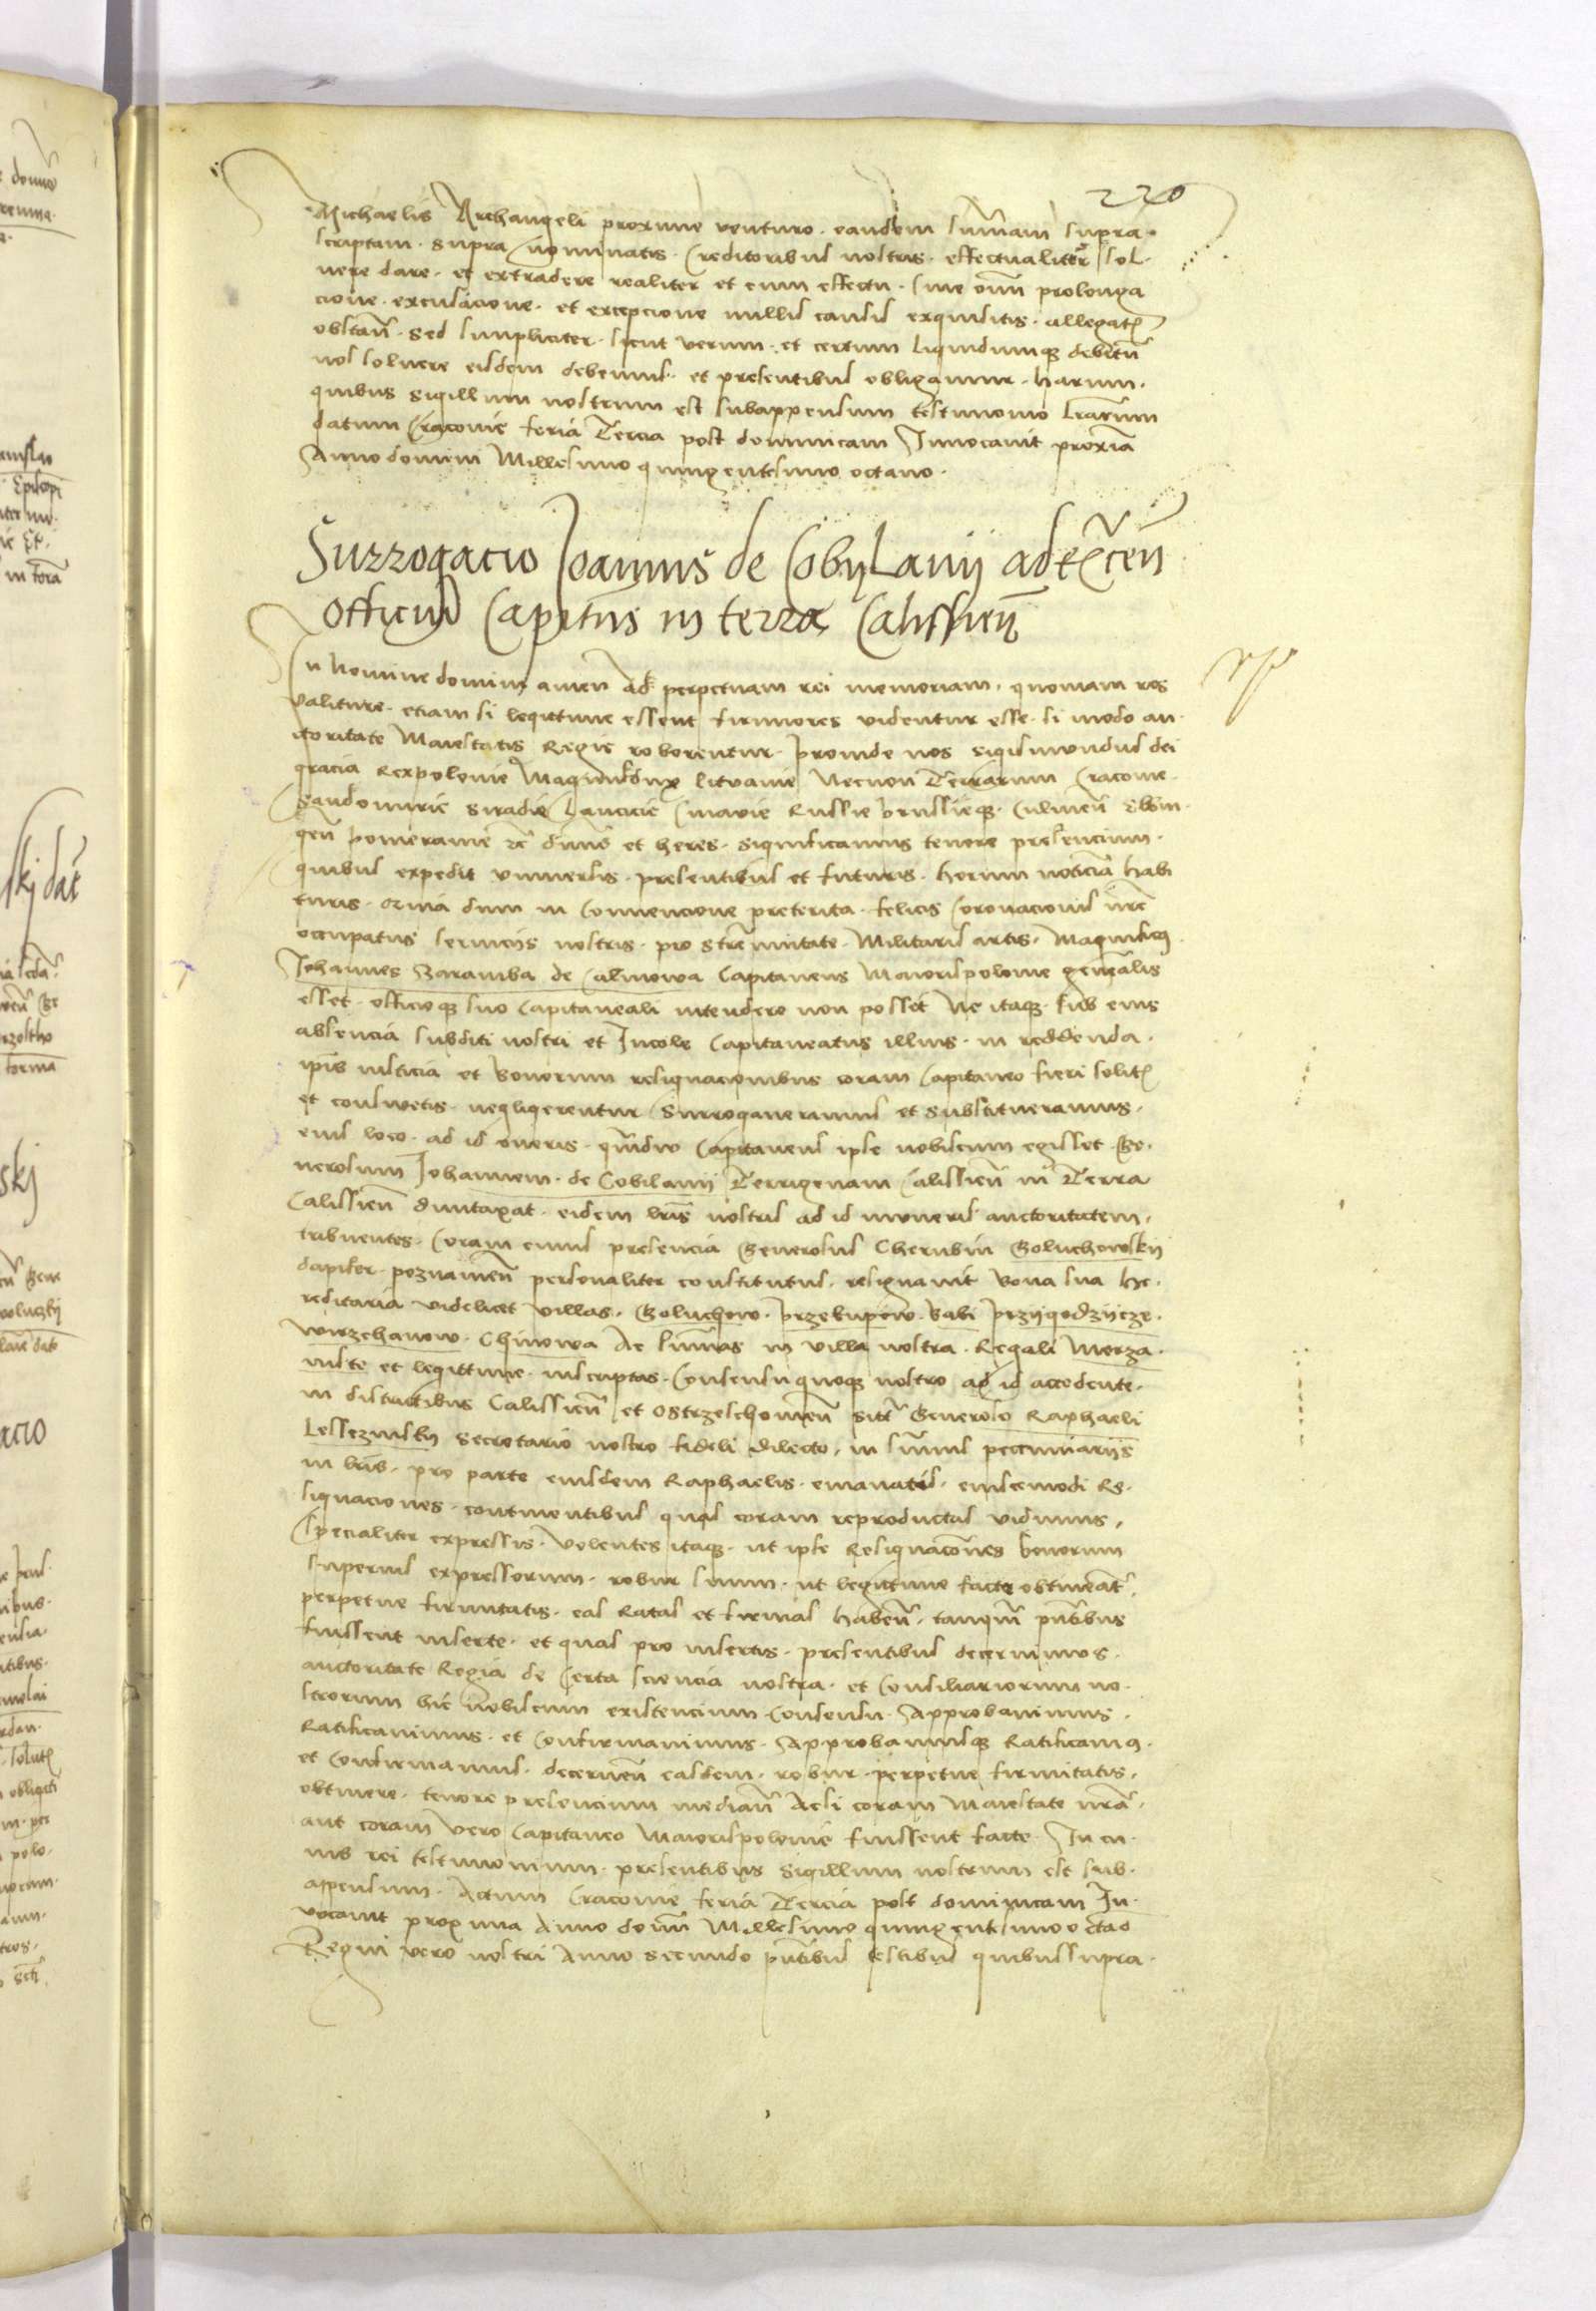 220
Michaelis Archangeli proxime venturo. eandem summam supra
scriptam. supra nominatis. Creditoribus nostris. effectualiter sol
uere dare. et extradere realiter et cum effectu. sine omni prolonga
cione. excusacione. et excepcione nullis causis exquisitis. allegatis
obstan̄. sed simpliciter. sicut verum. et certum liquidumq3 debitū
nos soluere eisdem debemus. et presentibus obligamur. harum.
quibus sigillum nostrum est subappensum testimonio lrarum
datum Cracovie feria Tercia post dominicam Invocavit proxīa
Anno domini Millesimo quingentesimo octavo.
Surrogacio Joannis de Cobylanij ad exc̄en
officiū Capitnis in terra Calissien̄
In Nomine domini amen Ad perpetuam rei memoriam. quoniam res
valiture. etiam si legittime essent firmiores videntur esse. si modo au
ctoritate Maiestatis Regie roborentur. proinde nos sigismundus dei
gracia Rex polonie Magnusdux lituanie Necnon Terrarum Cracovie.
Sandomirie Siradie Lancicie Cuiavie Russie prussieq3. Culmen̄ Elbin
gen̄ pomeranie zc̄ dn̄us et heres. significamus tenore presencium.
quibus expedit universis. presentibus et futuris. horum noticiā habi
turis. quia dum in Convencione preterita. felicis Coronacionis nr̄e
occupatus serviciis nostris. pro strennuitate. Militaris artis. Magnificus
Johannes Zaramba de Calinowa Capitaneus Maiorispolonie generalis
esset. officioq3 suo Capitaneali intendere non posset Ne itaq3. sub eius
absencia subditi nostri et Incole Capitaneatus illius. in reddenda.
ipis iusticia et bonorum resignacionibus coram Capitaneo fieri solitis
et consuetis. negligerentur Surrogaveramus et substitueramus.
eius loco. ad id oneris. quādiu Capitaneus ipse nobiscum egisset. Ge
nerosum Johannem. de Cobilanij Terrigenam Calissien̄ in Terra
Calissien̄ duntaxat. eidem lr̄is nostris ad id muneris auctoritatem.
tribuentes. Coram cuius presencia Generosus Cherubin Goluchowskij
dapifer poznanien̄ personaliter constitutus. resignavit bona sua he
reditaria videlicet villas. Goluchow. przekupow. babi przijgodzijcze.
wirzchanow. Chinowa Ac summas in villa nostra. Regali Morza.
iuste et legittime inscriptas. Consensuquoq3 nostro ad id accedente.
in districtibus Calissien̄ et Ostrzeschowien̄ sitis Generoso Raphaeli
Lesseznskij Secretario nostro fideli dilecto. in summis pecuniariis
in lr̄is. pro parte eiusdem Raphaelis. emanatis. eiuscemodi Re
signaciones. continentibus quas coram reproductas vidimus.
specialiter expressis. Volentes itaq3. ut ipse Resignacōnes bonorum
superius expressorum. robur suum. ut legittime facte obtineāt.
perpetue firmitatis. eas Ratas et firmas haben̄. tanquā pn̄tibus
fuissent inserte. et quas pro insertis. presentibus decernimus.
auctoritate Regia de Certa sciencia nostra. et Consiliariorum no
strorum hic nobiscum existencium Consensu. Approbavimus.
Ratificavimus. et Confirmavimus. Approbamusq3 Ratificamus.
et Confirmamus. decernen̄ easdem. robur perpetue firmitatis.
obtinere. tenore presencium median̄ Acsi coram Maiestate nr̄a.
aut coram vero Capitaneo Maiorispolonie fuissent facte. In cu
ius rei testimonium. presentibus sigillum nostrum est sub
appensum. Actum Cracovie feria Tercia post dominicam In
vocavit proxima Anno domini Millesimo quingentesimooctavo
Regni vero nostri Anno secundo pn̄tibus testibus quibussupra.